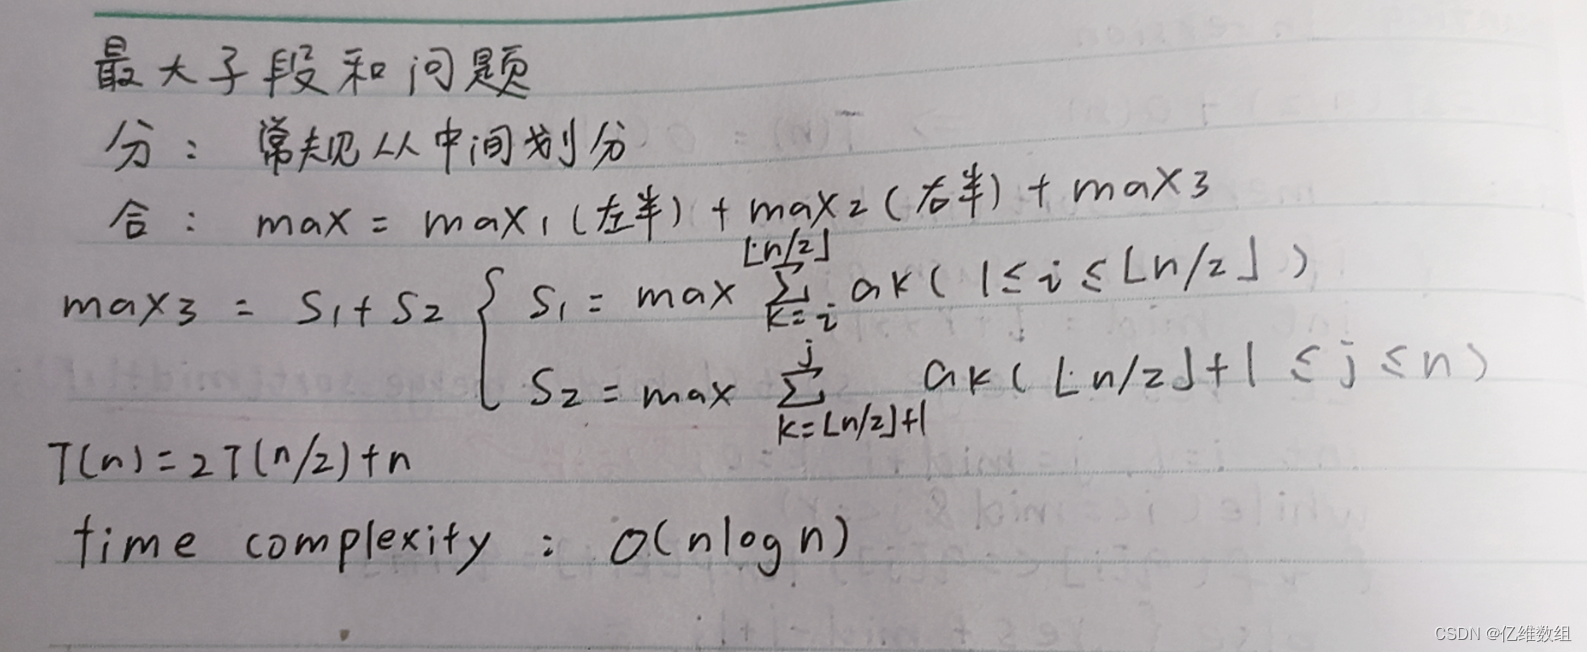 最大子段和问题
分：常规从中间划分
合：max = max1(左半) + max2(右半) + max3
max3 = S1+S2 { S1 = max ∑_{k=i}^{⌊n/2⌋} ak (1≤i≤⌊n/2⌋)
S2 = max ∑_{k=⌊n/2⌋+1}^{j} ak (⌊n/2⌋+1 ≤ j ≤ n)
T(n)=2T(n/2)+n
time complexity : O(nlogn)
CSDN @亿维数组